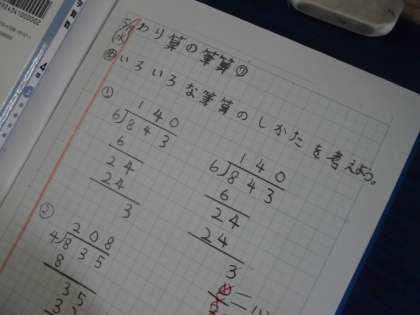 わり算の筆算⑦
め いろいろな筆算のしかたを考えよう。
①
140
6)843
6
24
24
3
140
6)843
6
24
24
3
②
208
4)835
8
35